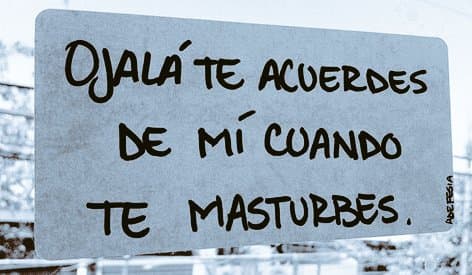 OJALÁ TE ACUERDES
DE MÍ CUANDO
TE MASTURBES.
ADEFESIA